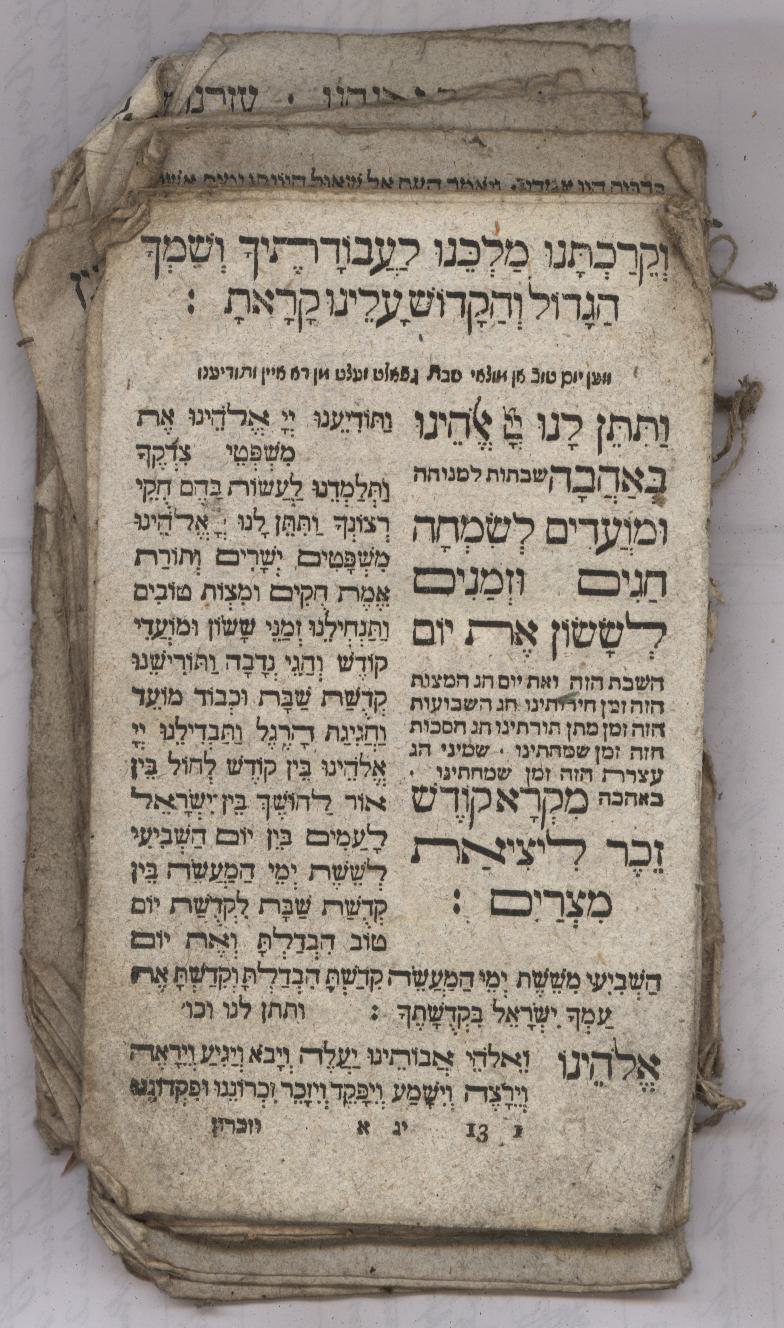 וְקֵרַבְתָּנוּ מַלְכֵּנוּ לַעֲבוֹדָתֶיךָ וְשִׁמְךָ
הַגָּדוֹל וְהַקָּדוֹשׁ עָלֵינוּ קָרָאתָ :
ווען יום טוב אן מוצאי שבת געפאלט זעצט מן דא איין ותודיענו
וַתִּתֵּן לָנוּ יְיָ אֱלֹהֵינוּ
בְּאַהֲבָה שבתות למנוחה
וּמוֹעֲדִים לְשִׂמְחָה
חַגִּים וּזְמַנִּים
לְשָׂשׂוֹן אֶת יוֹם
השבת הזה ואת יום חג המצות
הזה זמן חירותינו חג השבועות
הזה זמן מתן תורתינו חג הסכות
הזה זמן שמחתינו · שמיני חג
עצרת הזה זמן שמחתינו ·
באהבה מִקְרָא קוֹדֶשׁ
זֵכֶר לִיצִיאַת
מִצְרַיִם :
וַתּוֹדִיעֵנוּ יְיָ אֱלֹהֵינוּ אֶת
מִשְׁפְּטֵי צִדְקֶךָ
וַתְּלַמְּדֵנוּ לַעֲשׂוֹת בָּהֶם חֻקֵּי
רְצוֹנֶךָ וַתִּתֶּן לָנוּ יְיָ אֱלֹהֵינוּ
מִשְׁפָּטִים יְשָׁרִים וְתוֹרַת
אֱמֶת חֻקִּים וּמִצְוֹת טוֹבִים
וַתַּנְחִילֵנוּ זְמַנֵּי שָׂשׂוֹן וּמוֹעֲדֵי
קוֹדֶשׁ וְחַגֵּי נְדָבָה וַתּוֹרִישֵׁנוּ
קְדֻשַּׁת שַׁבָּת וּכְבוֹד מוֹעֵד
וַחֲגִיגַת הָרֶגֶל וַתַּבְדִּילֵנוּ יְיָ
אֱלֹהֵינוּ בֵּין קוֹדֶשׁ לְחוֹל בֵּין
אוֹר לַחוֹשֶׁךְ בֵּין יִשְׂרָאֵל
לָעַמִּים בֵּין יוֹם הַשְּׁבִיעִי
לְשֵׁשֶׁת יְמֵי הַמַּעֲשֶׂה בֵּין
קְדֻשַּׁת שַׁבָּת לִקְדֻשַּׁת יוֹם
טוֹב הִבְדַּלְתָּ וְאֶת יוֹם
הַשְּׁבִיעִי מִשֵּׁשֶׁת יְמֵי הַמַּעֲשֶׂה קִדַּשְׁתָּ הִבְדַּלְתָּ וְקִדַּשְׁתָּ אֶת
עַמְּךָ יִשְׂרָאֵל בִּקְדֻשָּׁתֶךָ : ותתן לנו וכו'
אֱלֹהֵינוּ וֵאלֹהֵי אֲבוֹתֵינוּ יַעֲלֶה וְיָבֹא וְיַגִּיעַ וְיֵרָאֶה
וְיֵרָצֶה וְיִשָּׁמַע וְיִפָּקֵד וְיִזָּכֵר זִכְרוֹנֵנוּ וּפִקְדוֹנֵנוּ
13 יג א וזכרון